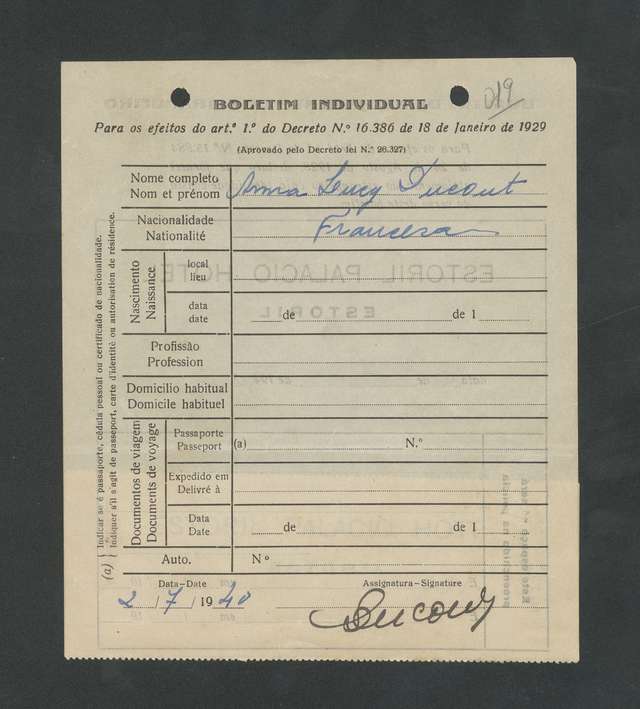 019
BOLETIM INDIVIDUAL
Para os efeitos do art.º 1.º do Decreto N.º 16.386 de 18 de Janeiro de 1929
(Aprovado pelo Decreto lei N.º 26.327)
Nome completo
Nom et prénom
Anna Lucy Ducout
Nacionalidade
Nationalité
Francesa
Nascimento
Naissance
local
lieu
data
date
de de 1
Profissão
Profession
Domicílio habitual
Domicile habituel
Documentos de viagem
Documents de voyage
Passaporte
Passeport
(a) N.º
Expedido em
Delivré à
Data
Date
de de 1
Auto. N º
(a) { Indicar se é passaporte, cédula pessoal ou certificado de nacionalidade.
Indiquer s'il s'agit de passeport, carte d'identité ou autorisation de résidence.
Data-Date
2 / 7 / 1940
Assignatura-Signature
ESTORIL PALACIO HOTEL
ESTORIL